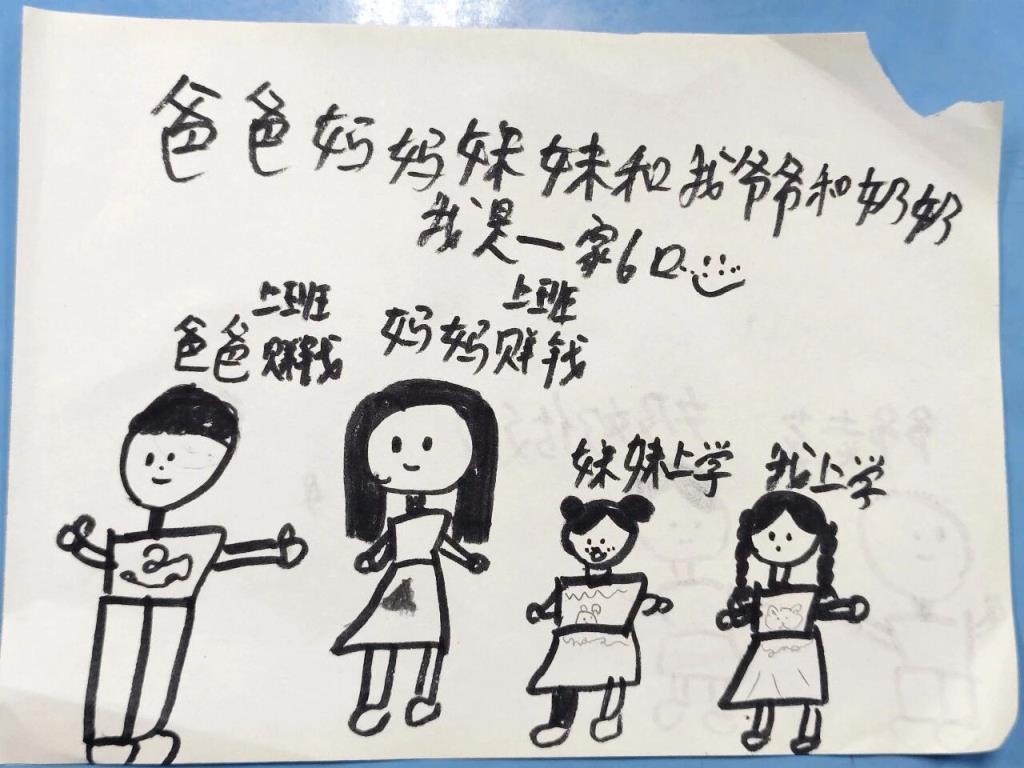 爸爸妈妈妹妹和我爷爷和奶奶
我是一家6口
上班
上班
爸爸赚钱
妈妈赚钱
妹妹上学
我上学